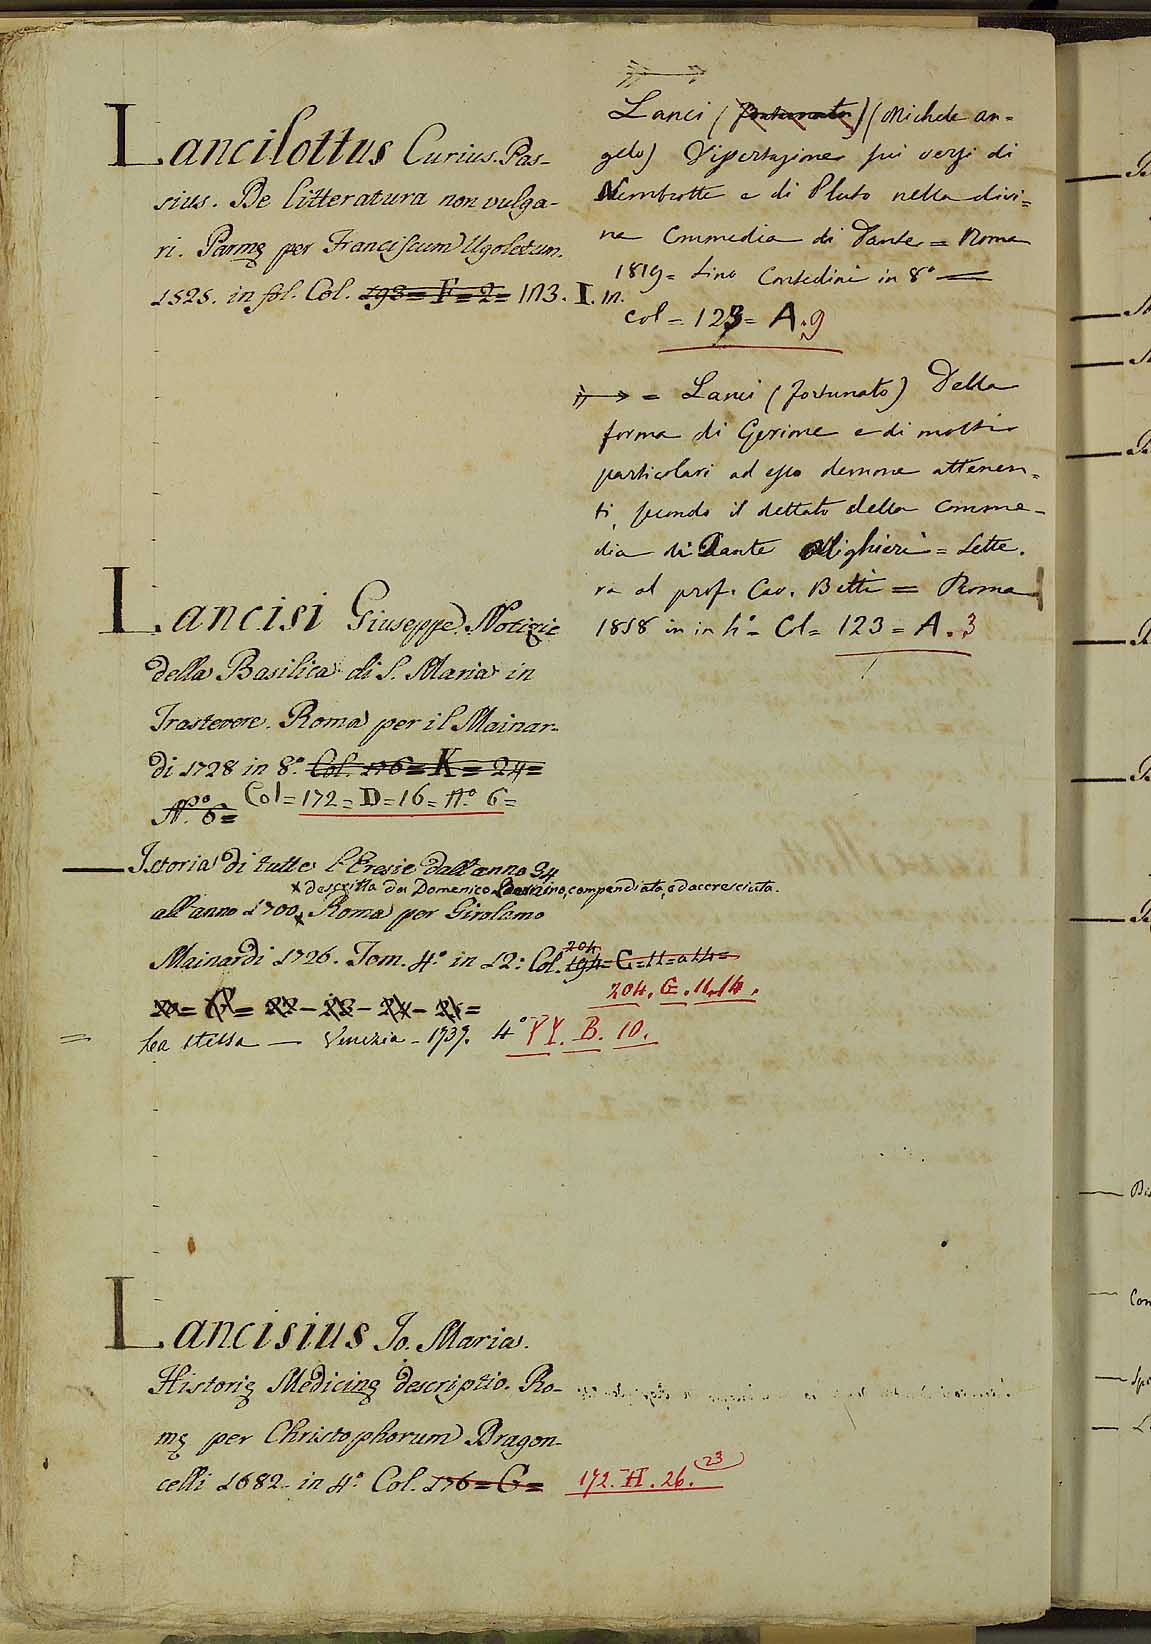 Lancilottus Curius. Pas-
sius. De litteratura non vulga-
ri. Parmę per Franciscum Ugoletum.
1525. in fol. Col. 193 = F = 2 = 113. I. 11.
Lancisi Giuseppe. Notizie
della Basilica di S. Maria in
Trastevere. Roma per il Mainar-
di 1728 in 8.º Col. 176 = K = 24 =
N.º 6 = Col = 172 = D = 16 = N.º 6 =
Istoria di tutte l'Eresie dall'anno 34
x descritta da Domenico Bernino, compendiata, ed accresciuta.
all'anno 1700 x Roma per Girolamo
Mainardi 1726. Tom. 4.º in 12: Col. 194 = 204 = C = 11 = a 14 =
204. C. 11. 14.
= 22 - 23 - 24 - 25 =
La stessa — Venezia - 1737. 4º YY. B. 10.
Lancisius Jo. Maria.
Historię Medicinę descriptio. Ro-
mę per Christophorum Dragon-
celli 1682. in 4.º Col. 176 = G =
172. H. 26. 23
Lanci (Fortunato) (Michele an=
gelo) Dissertazione sui versi di
Nembrotte e di Pluto nella divi=
na Commedia di Dante = Roma
1819 = Lino Contedini in 8º —
Col = 123 = A. 9
= Lanci (Fortunato) Della
forma di Gerione e di molti
particolari ad esso demone attenen=
ti, secondo il dettato della Comme-
dia di Dante Alighieri = Lette.
ra al prof. Cav. Betti = Roma
1858 in in 4º = Col = 123 = A. 3